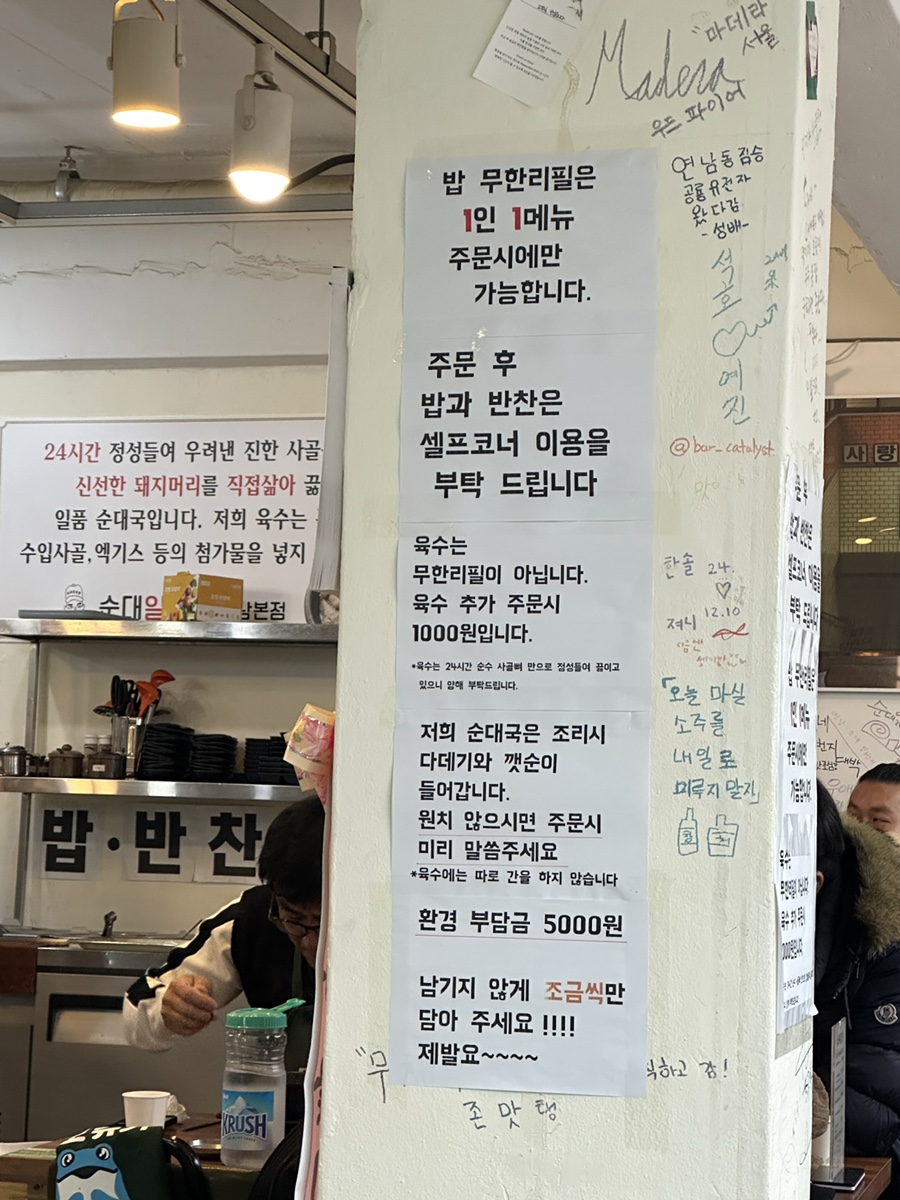 "마데라
서울
Madera
우드 파이어
밥 무한리필은
1인 1메뉴
주문시에만
가능합니다.
주문 후
밥과 반찬은
셀프코너 이용을
부탁 드립니다
육수는
무한리필이 아닙니다.
육수 추가 주문시
1000원입니다.
*육수는 24시간 순수 사골뼈 만으로 정성들여 끓이고
있으니 양해 부탁드립니다.
저희 순대국은 조리시
다데기와 깻순이
들어갑니다.
원치 않으시면 주문시
미리 말씀주세요
*육수에는 따로 간을 하지 않습니다
환경 부담금 5000원
남기지 않게 조금씩만
담아 주세요 !!!!
제발요~~~~
연남동짐승
공룡유전자
왔다감
-성배-
석호
예진
@bar_catalyst
맛
한솔 24.
져니 12.10
「오늘 마실
소주를
내일로
미루지 말자」
하고 감!
존맛탱
24시간 정성들여 우려낸 진한 사골
신선한 돼지머리를 직접삶아 끓
일품 순대국입니다. 저희 육수는
수입사골,엑기스 등의 첨가물을 넣지
순대일
남본점
밥·반찬
KRUSH
사랑
셀프코너 이용을
부탁 드립니다
밥 무한리필은
1인 1메뉴
주문시에만
가능합니다.
육수는
무한리필이 아닙니다.
육수 추가 주문시
1000원입니다.